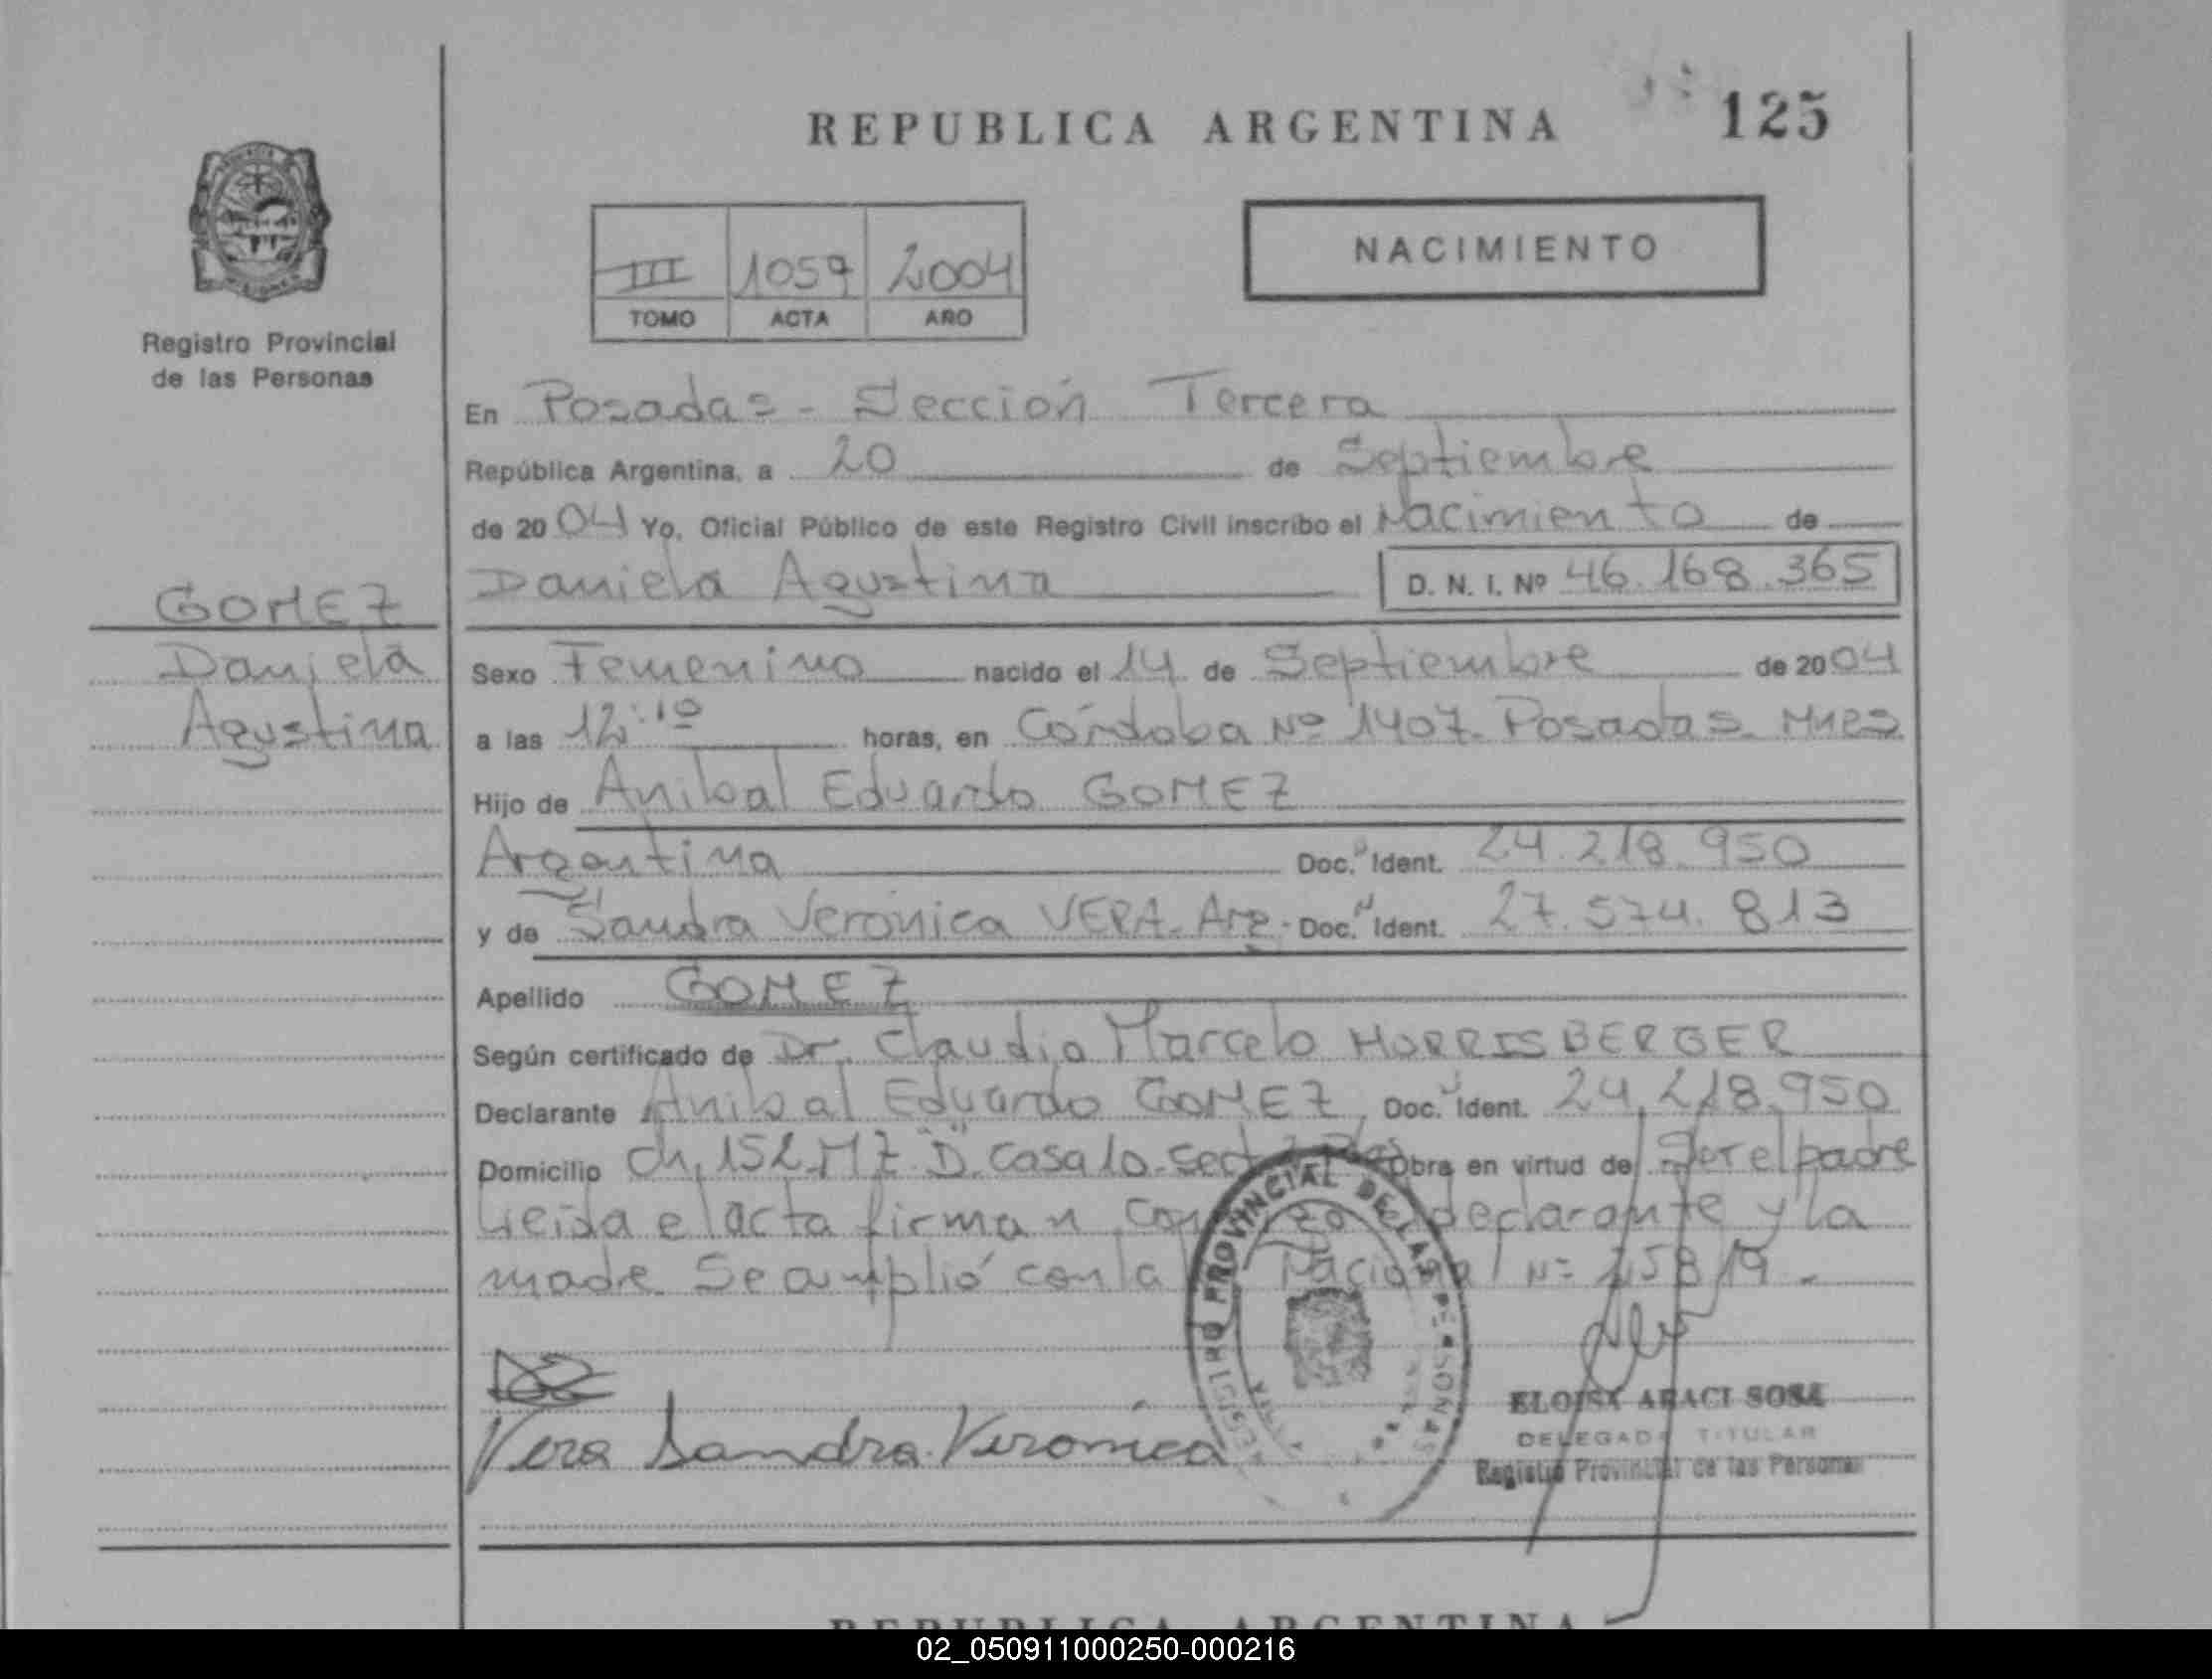 REPUBLICA ARGENTINA
125
NACIMIENTO
III 1059 2004
TOMO ACTA AÑO
Registro Provincial
de las Personas
En Posadas - Sección Tercera
República Argentina, a 20 de Septiembre
de 2004 Yo, Oficial Público de este Registro Civil inscribo el Nacimiento de
Daniela Agustina D. N. I. Nº 46.168.365
GOMEZ
Daniela
Agustina
Sexo Femenino nacido el 14 de Septiembre de 2004
a las 12:10 horas, en Córdoba Nº 1407 Posadas Mnes
Hijo de Anibal Eduardo GOMEZ
Argentina Doc. Ident. 24.218.950
y de Sandra Verónica VERA. Arg- Doc. Ident. 27.574.813
Apellido GOMEZ
Según certificado de Dr. Claudio Marcelo MORRISBERGER
Declarante Anibal Eduardo GOMEZ Doc. Ident. 24.218.950
Domicilio Ch. 152 MZ "D" casa 10 Obra en virtud de Ser el padre
Leida el acta firman declarante y la
madre Se amplió con la Nacional
Vera Sandra Veronica
REGISTRO PROVINCIAL DE LAS PERSONAS
ELOISA ARACI SOSA
DELEGADA TITULAR
Registro Provincial de las Personas
REPUBLICA ARGENTINA
02_050911000250-000216